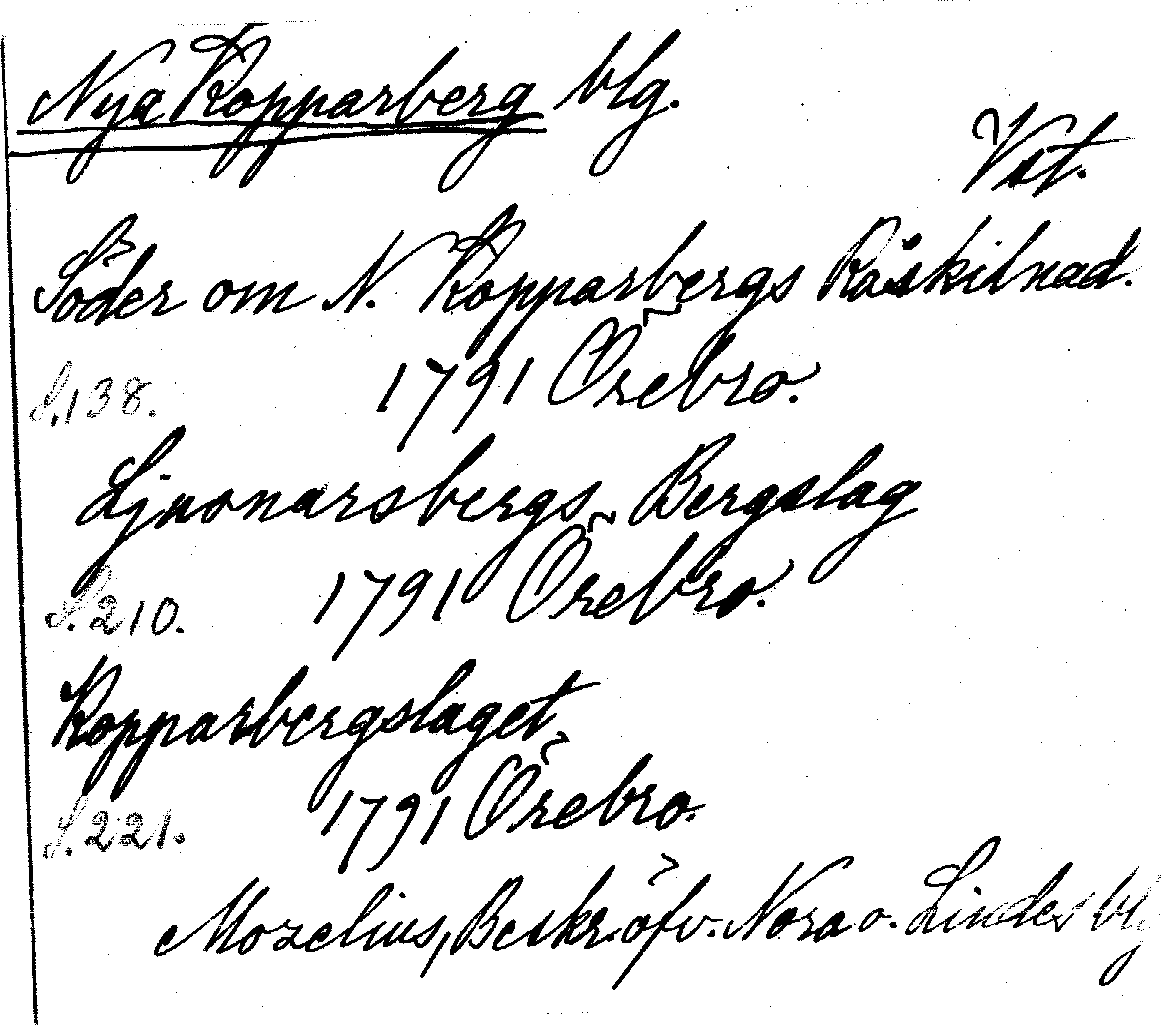 Nya Kopparberg blg.
Vst.
Söder om N. Kopparbergs Råskilnad.
S. 138. 1791 Örebro.
Ljusnarsbergs Bergslag
S. 210. 1791 Örebro.
Kopparbergslaget
S. 221. 1791 Örebro.
Mozelius, Beskr. öfv. Nora o. Lindes blg